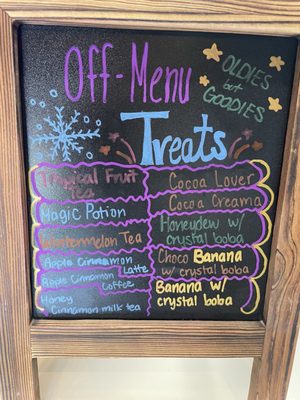 Off-Menu
OLDIES
but
GOODIES
Treats
Tropical Fruit
Tea
Magic Potion
Watermelon Tea
Apple Cinnamon
Latte
Apple Cinnamon
Coffee
Honey
Cinnamon milk tea
Cocoa Lover
Cocoa Creama
Honeydew w/
crystal boba
Choco Banana
w/ crystal boba
Banana w/
crystal boba